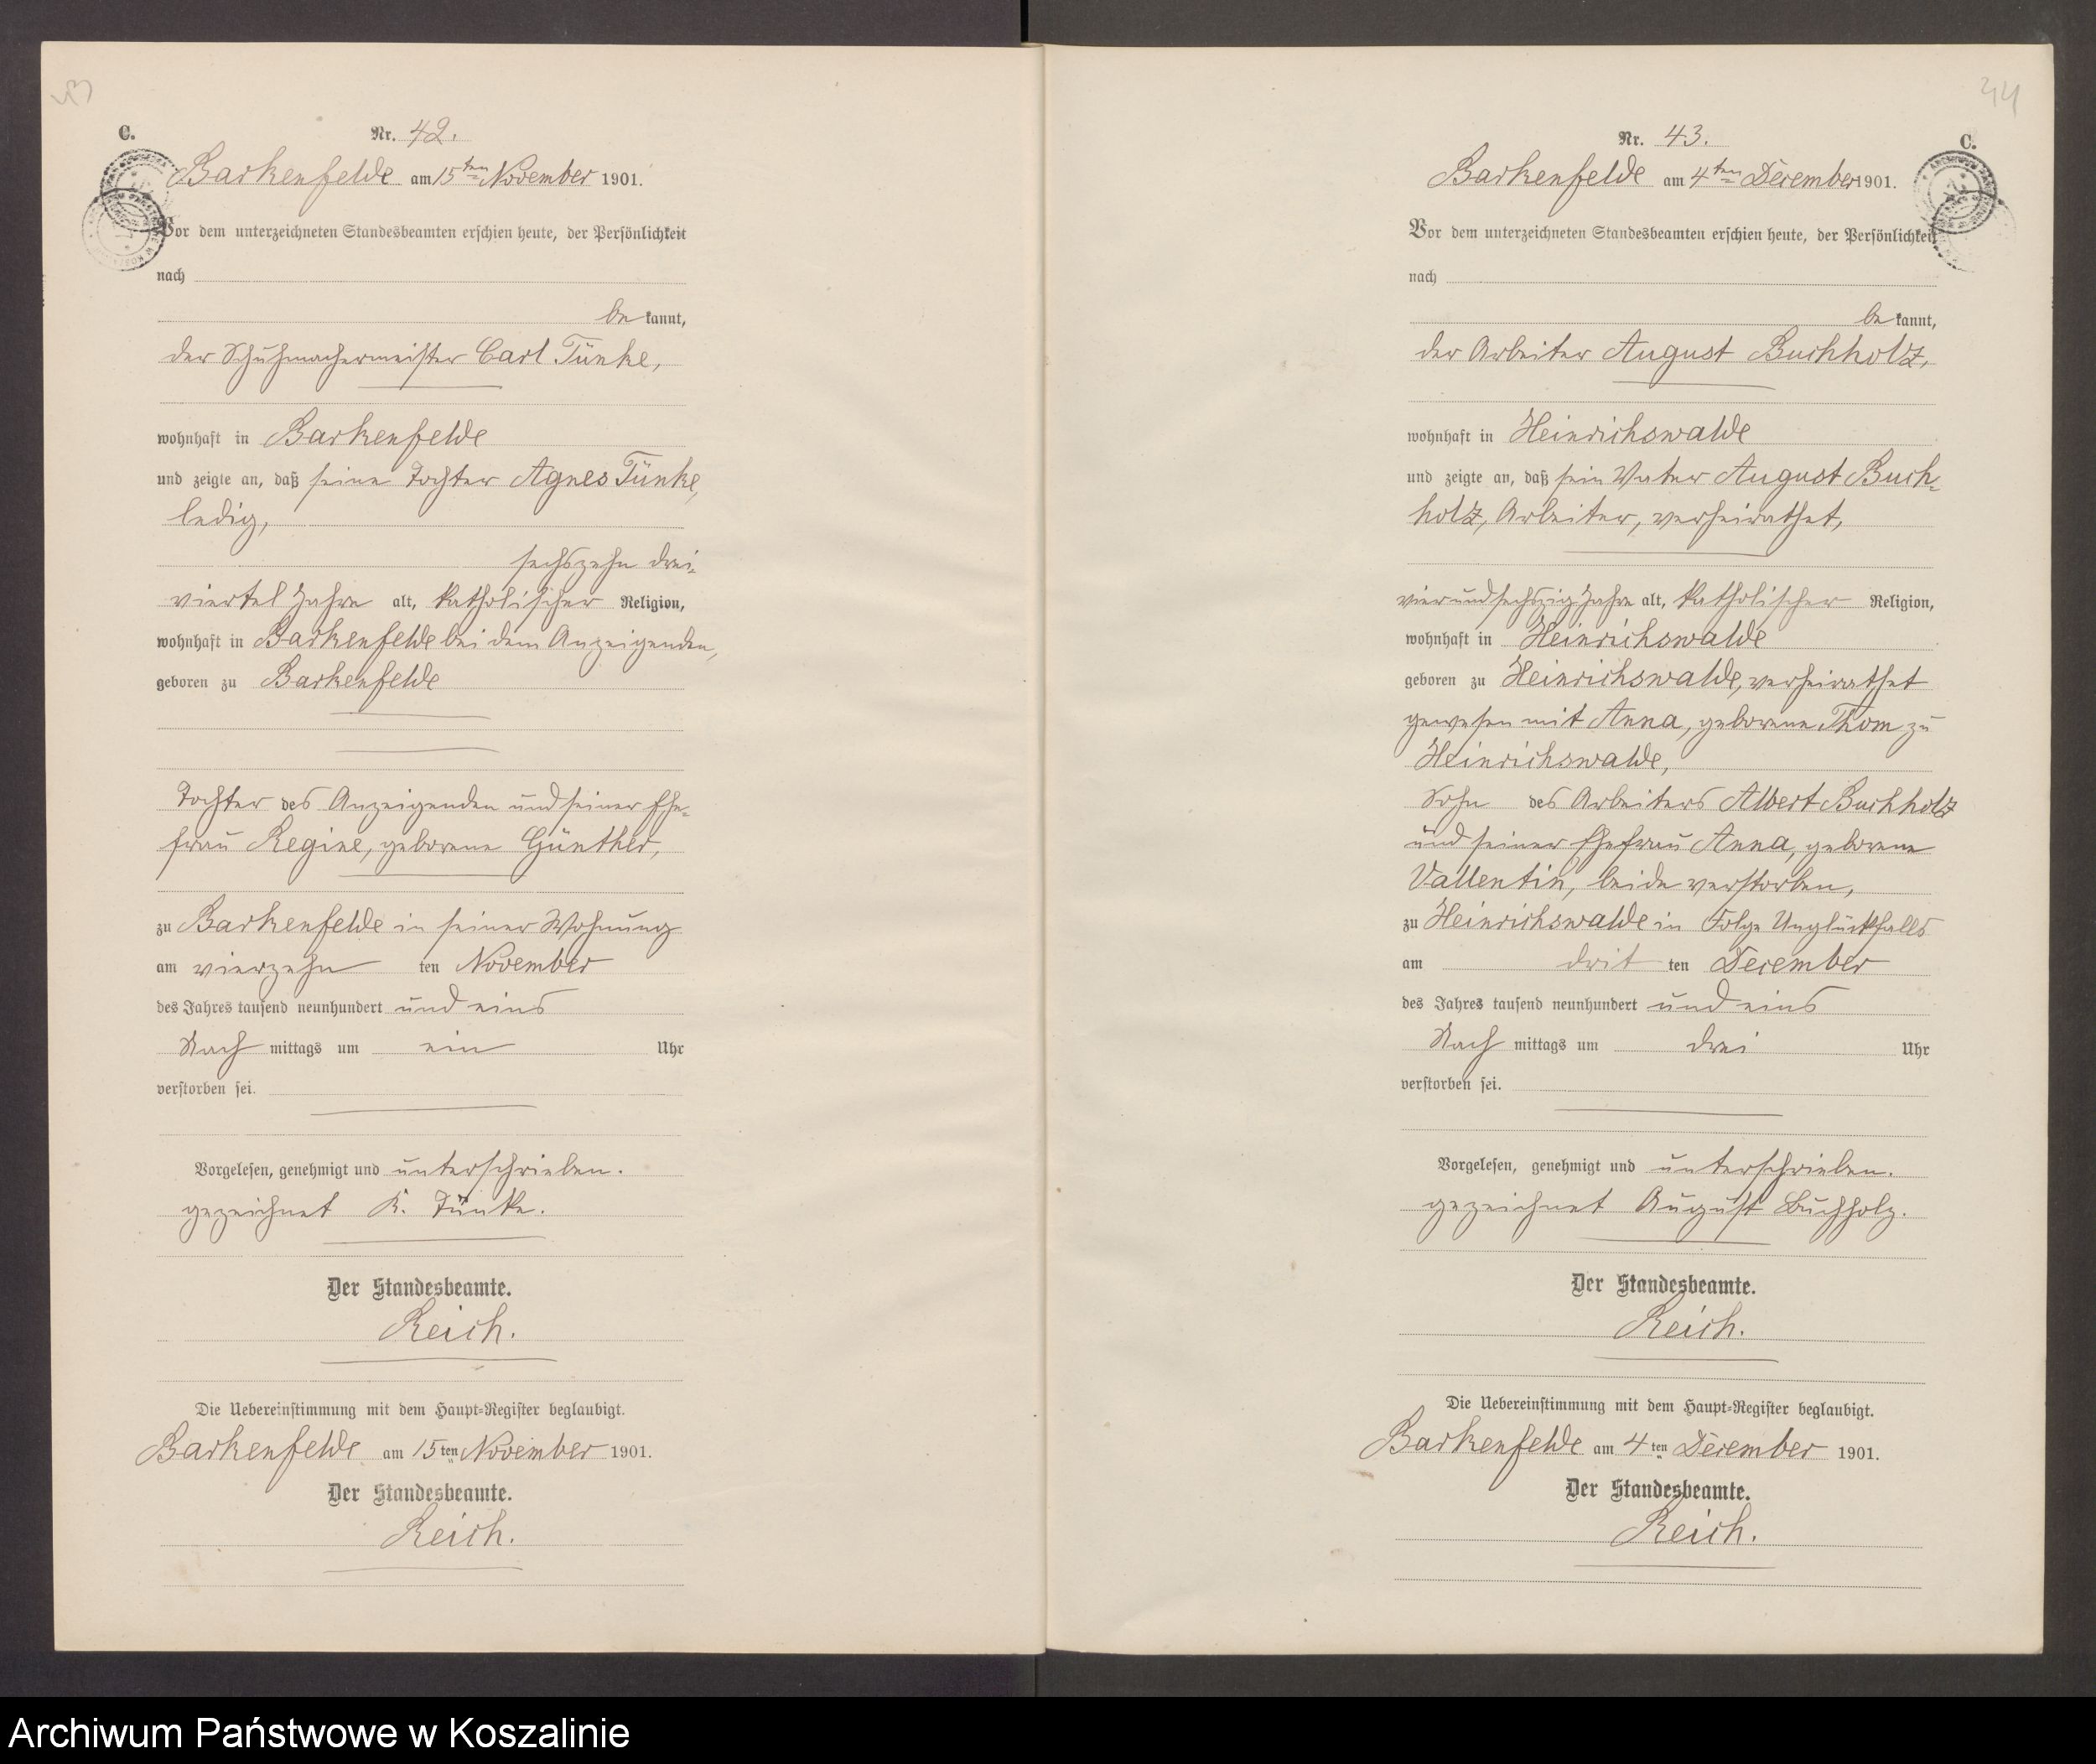 C.
Nr. 42.
Barkenfelde am 15ten November 1901.
Vor dem unterzeichneten Standesbeamten erschien heute, der Persönlichkeit
nach
be kannt,
der Schuhmachermeister Carl Tünke,
wohnhaft in Barkenfelde
und zeigte an, daß seine Tochter Agnes Tünke,
ledig,
sechszehn drei-
viertel Jahre alt, katholischer Religion,
wohnhaft in Barkenfelde bei dem Anzeigenden,
geboren zu Barkenfelde
Tochter des Anzeigenden und seiner Ehe-
frau Regine, geborene Günther,
zu Barkenfelde in seiner Wohnung
am vierzehn ten November
des Jahres tausend neunhundert und eins
Nach mittags um ein Uhr
verstorben sei.
Vorgelesen, genehmigt und unterschrieben.
gezeichnet K. Tünke.
Der Standesbeamte.
Reich.
Die Uebereinstimmung mit dem Haupt-Register beglaubigt.
Barkenfelde am 15ten November 1901.
Der Standesbeamte.
Reich.
44
Nr. 43.
C.
Barkenfelde am 4ten December 1901.
Vor dem unterzeichneten Standesbeamten erschien heute, der Persönlichkeit
nach
be kannt,
der Arbeiter August Buchholz,
wohnhaft in Heinrichswalde
und zeigte an, daß sein Vater August Buch-
holz, Arbeiter, verheirathet,
vierundsechszig Jahre alt, katholischer Religion,
wohnhaft in Heinrichswalde
geboren zu Heinrichswalde, verheirathet
gewesen mit Anna, geborene Thom zu
Heinrichswalde,
Sohn des Arbeiters Albert Buchholz
und seiner Ehefrau Anna, geborene
Vallentin, beide verstorben,
zu Heinrichswalde in Folge Unglückfalls
am drit ten December
des Jahres tausend neunhundert und eins
Nach mittags um drei Uhr
verstorben sei.
Vorgelesen, genehmigt und unterschrieben.
gezeichnet August Buchholz.
Der Standesbeamte.
Reich.
Die Uebereinstimmung mit dem Haupt-Register beglaubigt.
Barkenfelde am 4ten December 1901.
Der Standesbeamte.
Reich.
Archiwum Państwowe w Koszalinie